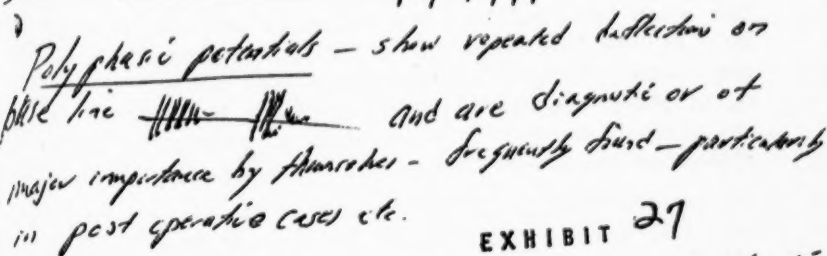 Polyphasic potentials – show repeated deflections on
base line and are diagnostic or of
major importance by themselves – frequently found – particularly
in post operative cases etc.
EXHIBIT 27